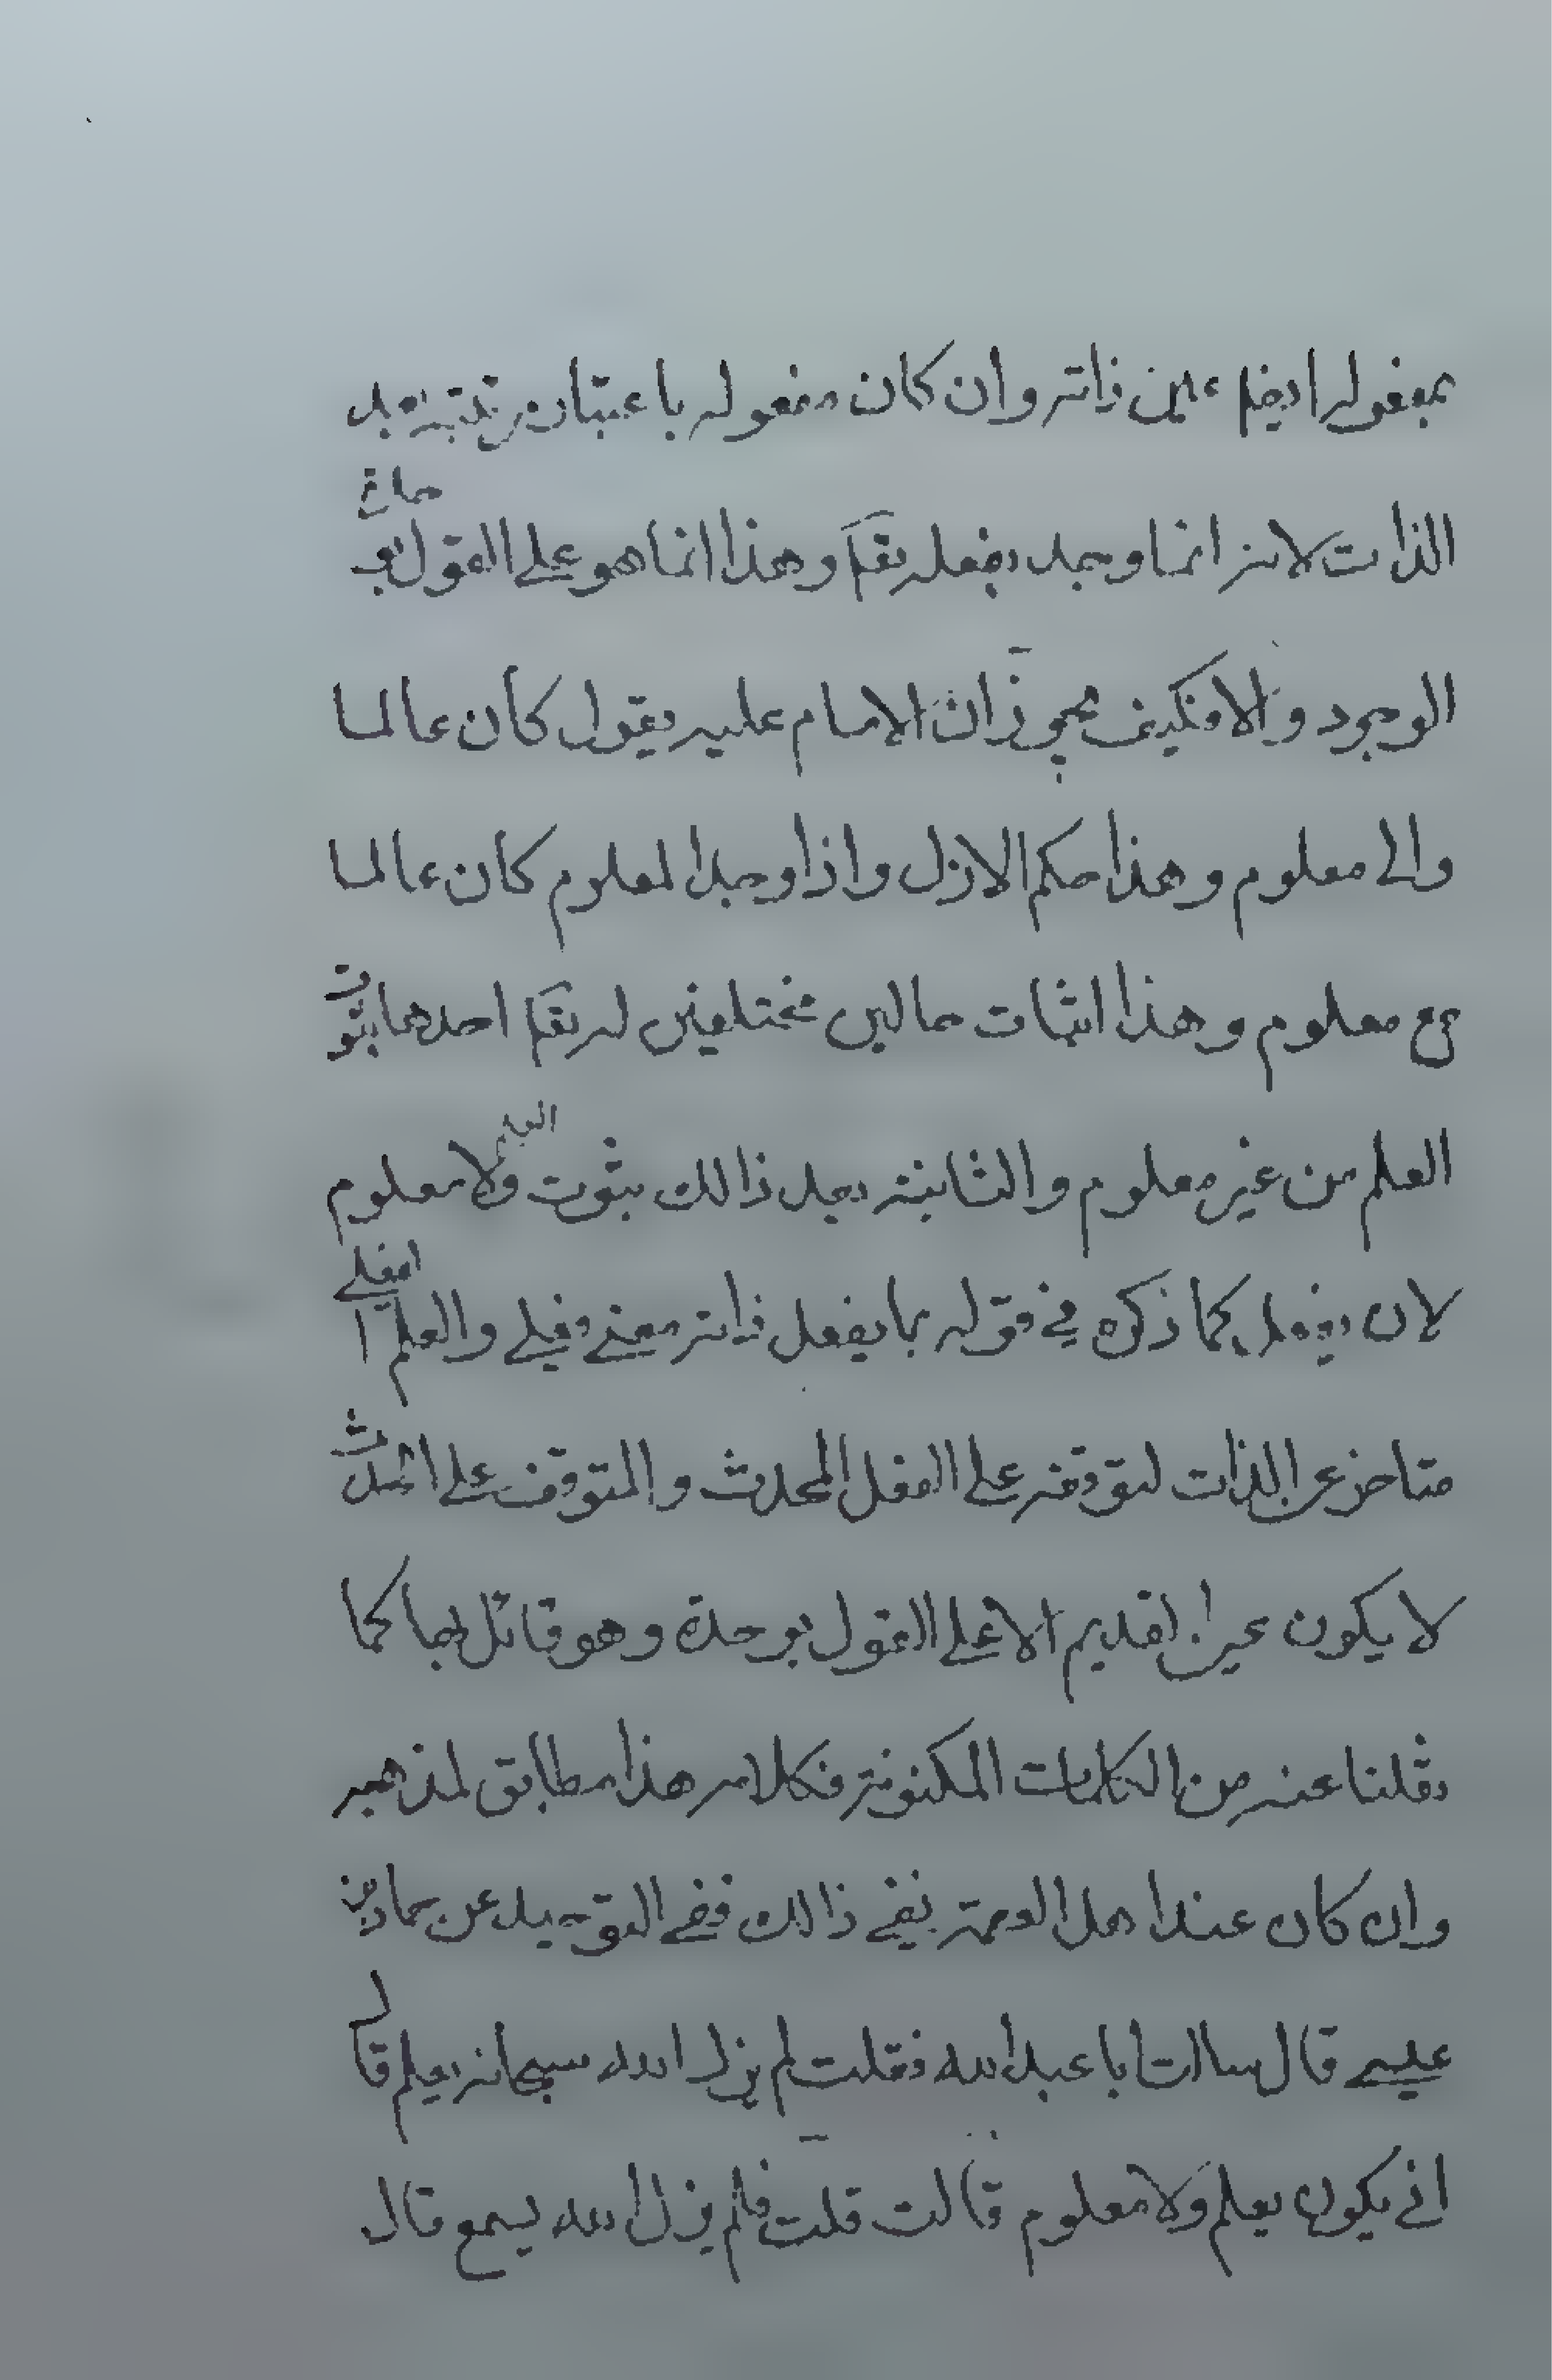 بمفعوله ايضا عين ذاته وان كان مفعوله باعتبار مرتبته بعد
الذات لانه انما وجد بفعله تعالى وهذا انما هو على القول بوحدة
الوجود والا فكيف يجوز ان الامام عليه يقول كان عالما
والى معلوم وهذا حكم الازل واذا وجد المعلوم كان عالما
مع معلوم وهذا اثبات حالين مختلفين له تعالى احدهما بثبوت
العلم من غير معلوم والثانية بعد ذالك بثبوت العلم ولا معلوم
لان يفعل كما ذكره في قوله بما يفعل ذاته معنى فعلي والعلم الفعلي
متاخر عن الذات لتوقفه على الفعل المحدث والمتوقف على المحدث
لا يكون عين القديم الا على القول بوحدة وهو قائل بها كما
نقلنا عنه من الكلمات المكنونة فكلامه هذا مطابق لمذهبه
وان كان عند اهل العصمة نفي ذالك ففي التوحيد عن حماد بن
عيسى قال سالت ابا عبد الله فقلت لم يزل الله سبحانه يعلم قال
انى يكون يعلم ولا معلوم قالت قلت فلم يزل الله يسمع قال